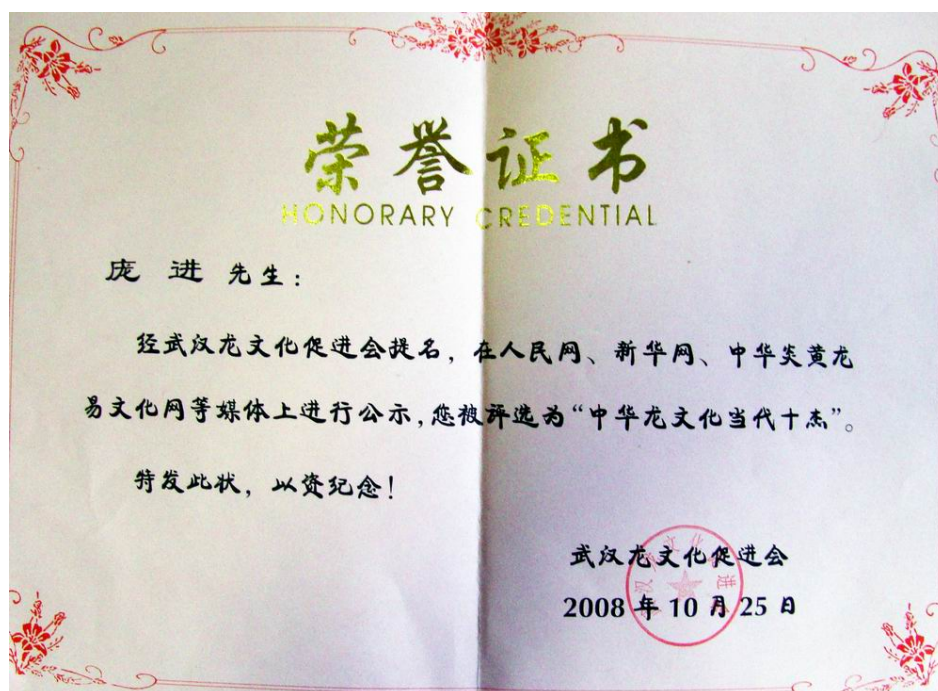 荣誉证书
HONORARY CREDENTIAL
庞 进 先生：
经武汉龙文化促进会提名，在人民网、新华网、中华炎黄龙
易文化网等媒体上进行公示，您被评选为“中华龙文化当代十杰”。
特发此状，以资纪念！
武汉龙文化促进会
2008 年 10 月 25 日